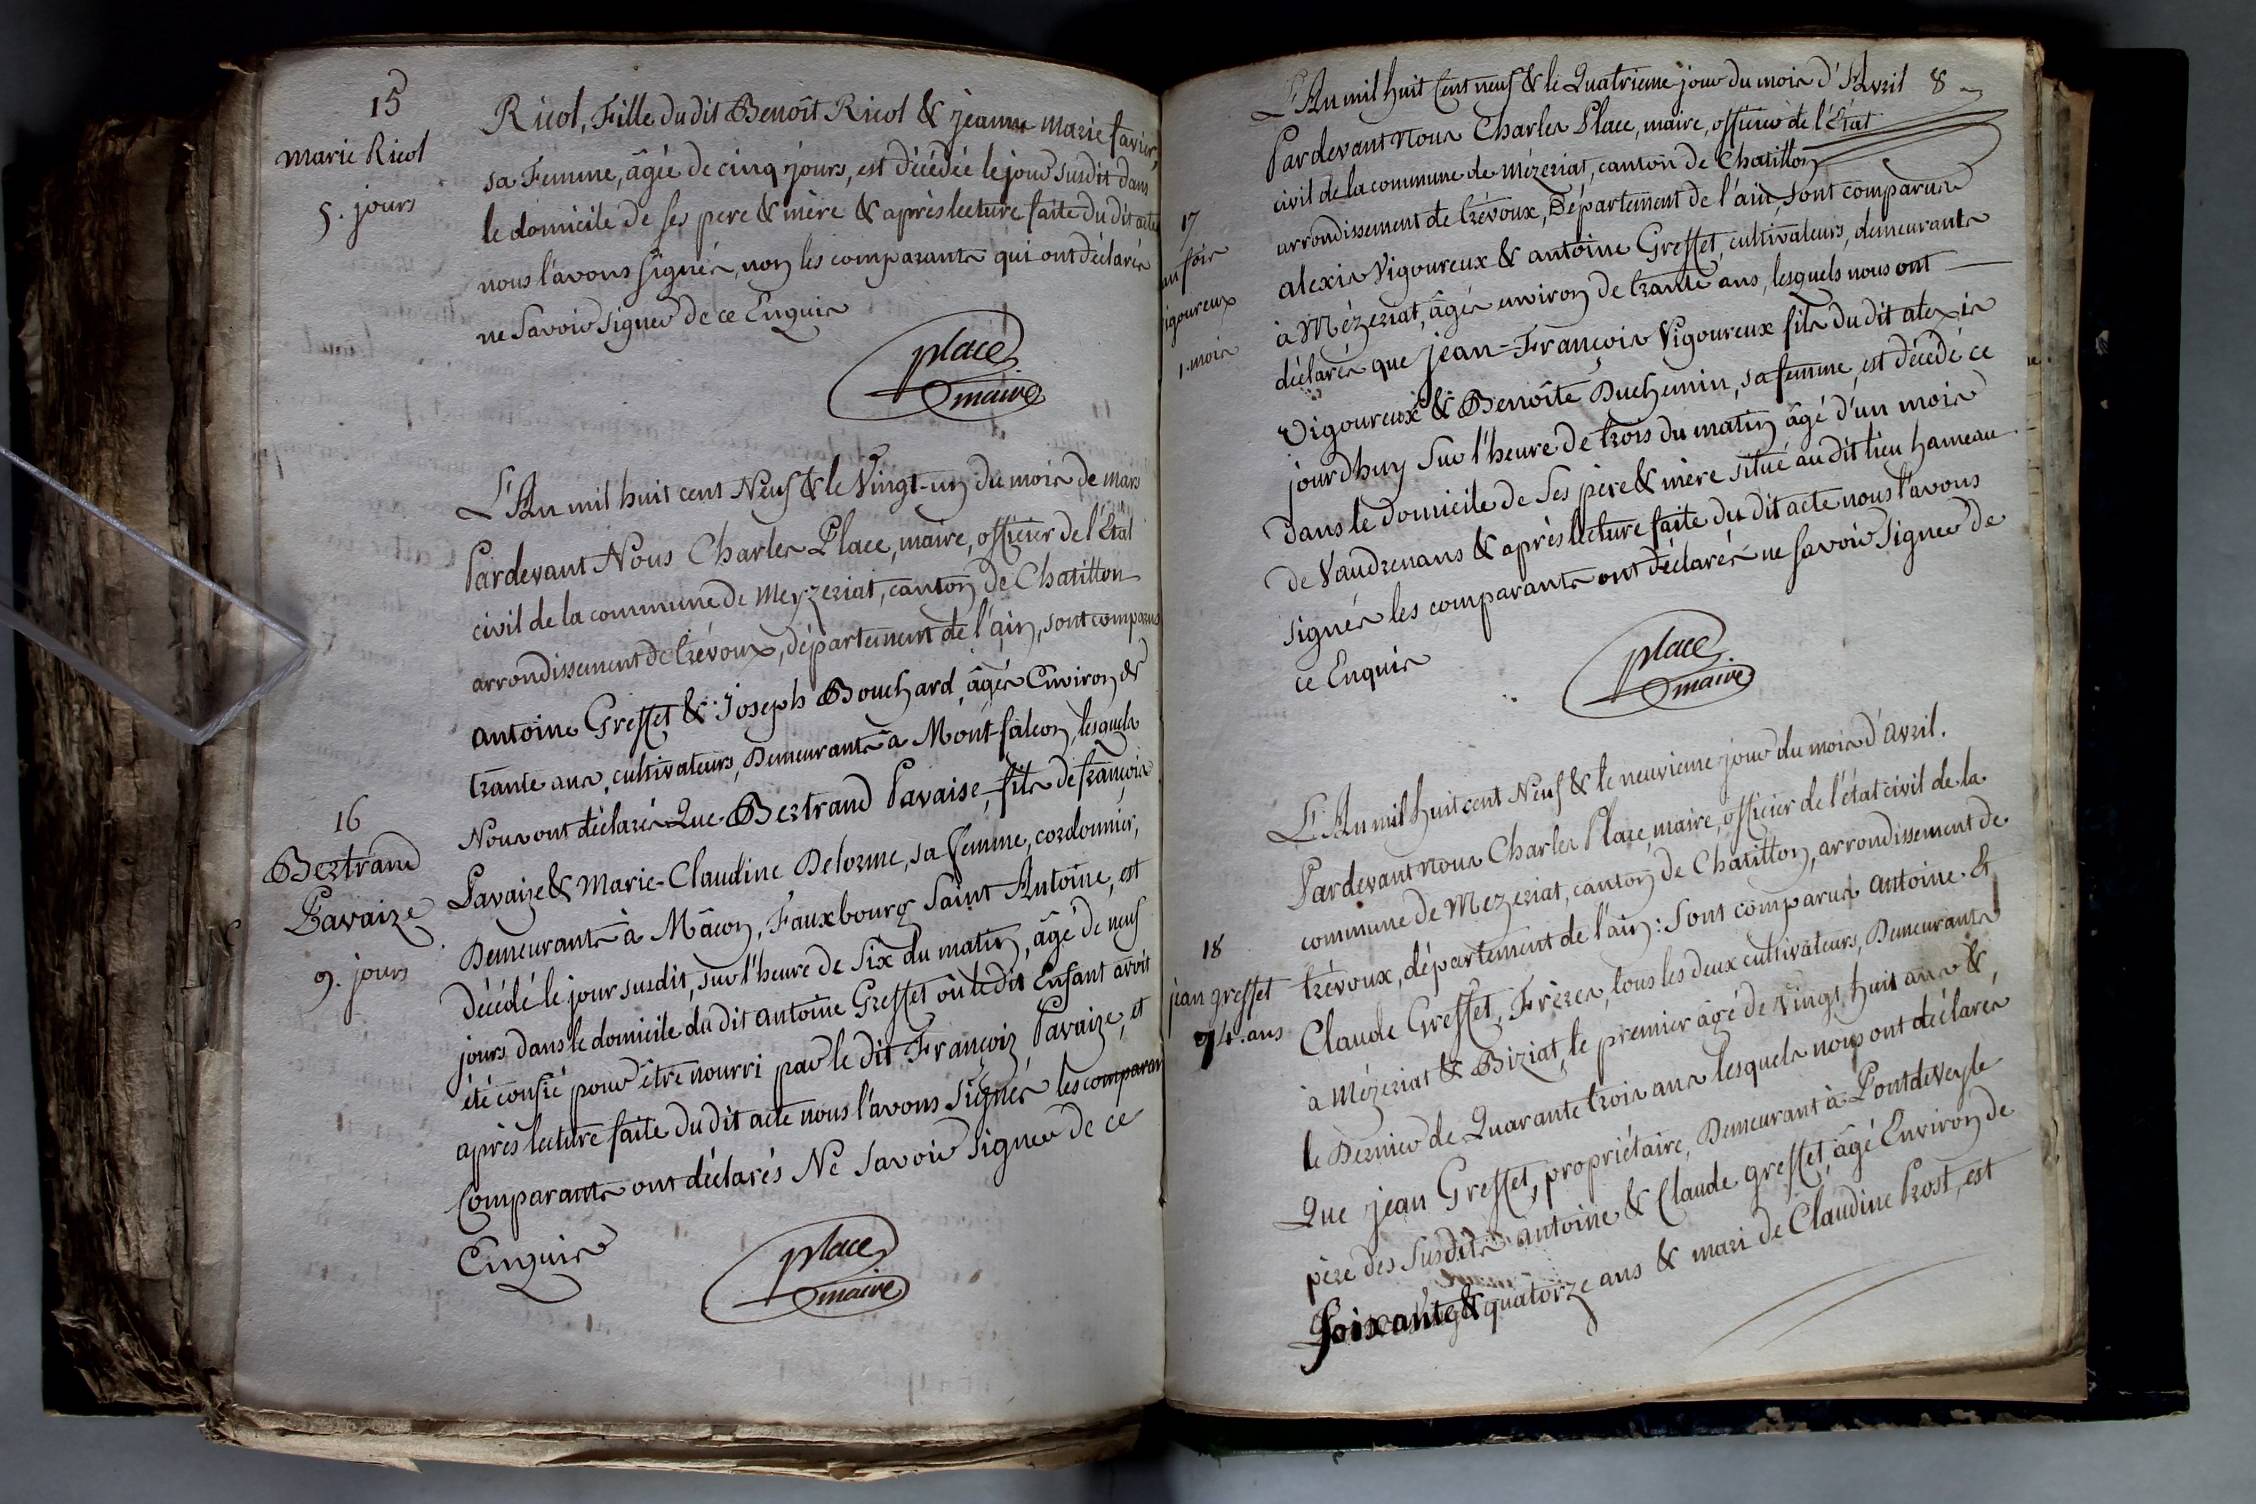 15
Marie Ricol
5. jours
Ricol, Fille du dit Benoît Ricol & jeanne marie favier,
sa Femme, âgée de cinq jours, est décédée le jour susdit dans
le domicile de ses pere & mère & après lecture faite du dit acte
nous l'avons signés, non les comparants qui ont déclarés
ne savoir signer de ce Enquis
place
maire
L'An mil huit cent Neuf & le Vingt-un du mois de mars
Pardevant Nous Charles Place, maire, officier de l'État
civil de la commune de Meyzeriat, canton de Chatillon
arrondissement de trévoux, département de l'ain, sont comparus
antoine Greffet & Joseph Bouchard, âgés Environ de
trante ans, cultivateurs, Demeurants à Mont-falcon, lesquels
Nous ont déclarés Que Bertrand Pavaise, fils de françois
16
Bertrand
Pavaize
9. jours
Pavaize & Marie-Claudine Delorme, sa femme, cordonnier,
Demeurants à Mâcon, Fauxbourg Saint Antoine, est
décédé le jour susdit, sur l'heure de six du matin, âgé de neuf
jours, dans le domicile du dit antoine Greffet où le dit Enfant avoit
été confié pour être nourri par le dit François Pavaize, et
après lecture faite du dit acte nous l'avons signés les comparan
Comparants ont déclarés Ne savoir signer de ce
Enquis
place
maire
L'An mil huit Cent neuf & le Quatrieme jour du mois d'Avril 8
Pardevant nous Charles Place, maire, officier de l'État
civil de la commune de mézeriat, canton de Chatillon
arrondissement de trévoux, Département de l'ain, sont comparus
17
igoureux
1. mois
alexis Vigoureux & antoine Greffet, cultivateurs, demeurants
à Mézeriat, âgés environ de trante ans, lesquels nous ont
déclarés que jean-François Vigoureux fils du dit alexis
Vigoureux & Benoîte Duchemin, sa femme, est décédé ce
jourdhuy sur l'heure de trois du matin âgé d'un mois
dans le domicile de ses père & mère situé au dit lieu hameau
de Vaudrenans & après lecture faite du dit acte nous l'avons
signés les comparants ont déclarés ne savoir signer de
ce Enquis
place
maire
L'An mil huit cent Neuf & le neuvieme jour du mois d'avril.
Pardevant nous Charles Place, maire, officier de l'état civil de la
commune de Mezeriat, canton de Chatillon, arrondissement de
trévoux, département de l'ain : sont comparus antoine &
18
jean greffet
74. ans
Claude Greffet, Frères, tous les deux cultivateurs, Demeurants
à Mézeriat & Biziat, le premier âgé de vingt huit ans &,
le Dernier de Quarante trois ans lesquels nous ont déclarés
Que jean Greffet, propriétaire, Demeurant à Pontdeveyle
père des susdits antoine & Claude greffet, âgé Environ de
Soixante & quatorze ans & mari de Claudine Prost, est